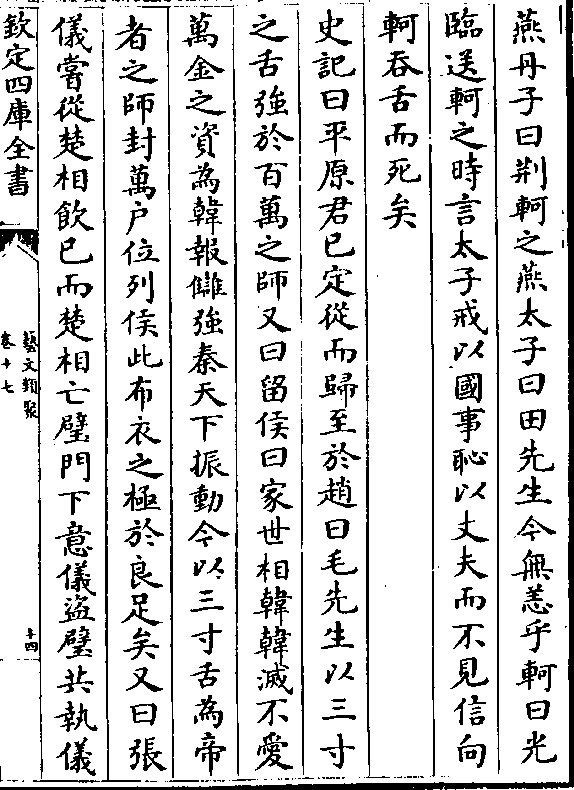 燕丹子曰荆軻之燕太子曰田先生今無恙乎軻曰光
臨送軻之時言太子戒以國事恥以丈夫而不見信向
軻吞舌而死矣
史記曰平原君已定從而歸至於趙曰毛先生以三寸
之舌強於百萬之師又曰留侯曰家世相韓韓滅不愛
萬金之資為韓報讎強秦天下振動今以三寸舌為帝
者之師封萬户位列侯此布衣之極於良足矣又曰張
儀嘗從楚相飲已而楚相亡璧門下意儀盜璧共執儀
欽定四庫全書
藝文類聚
卷十七
十四